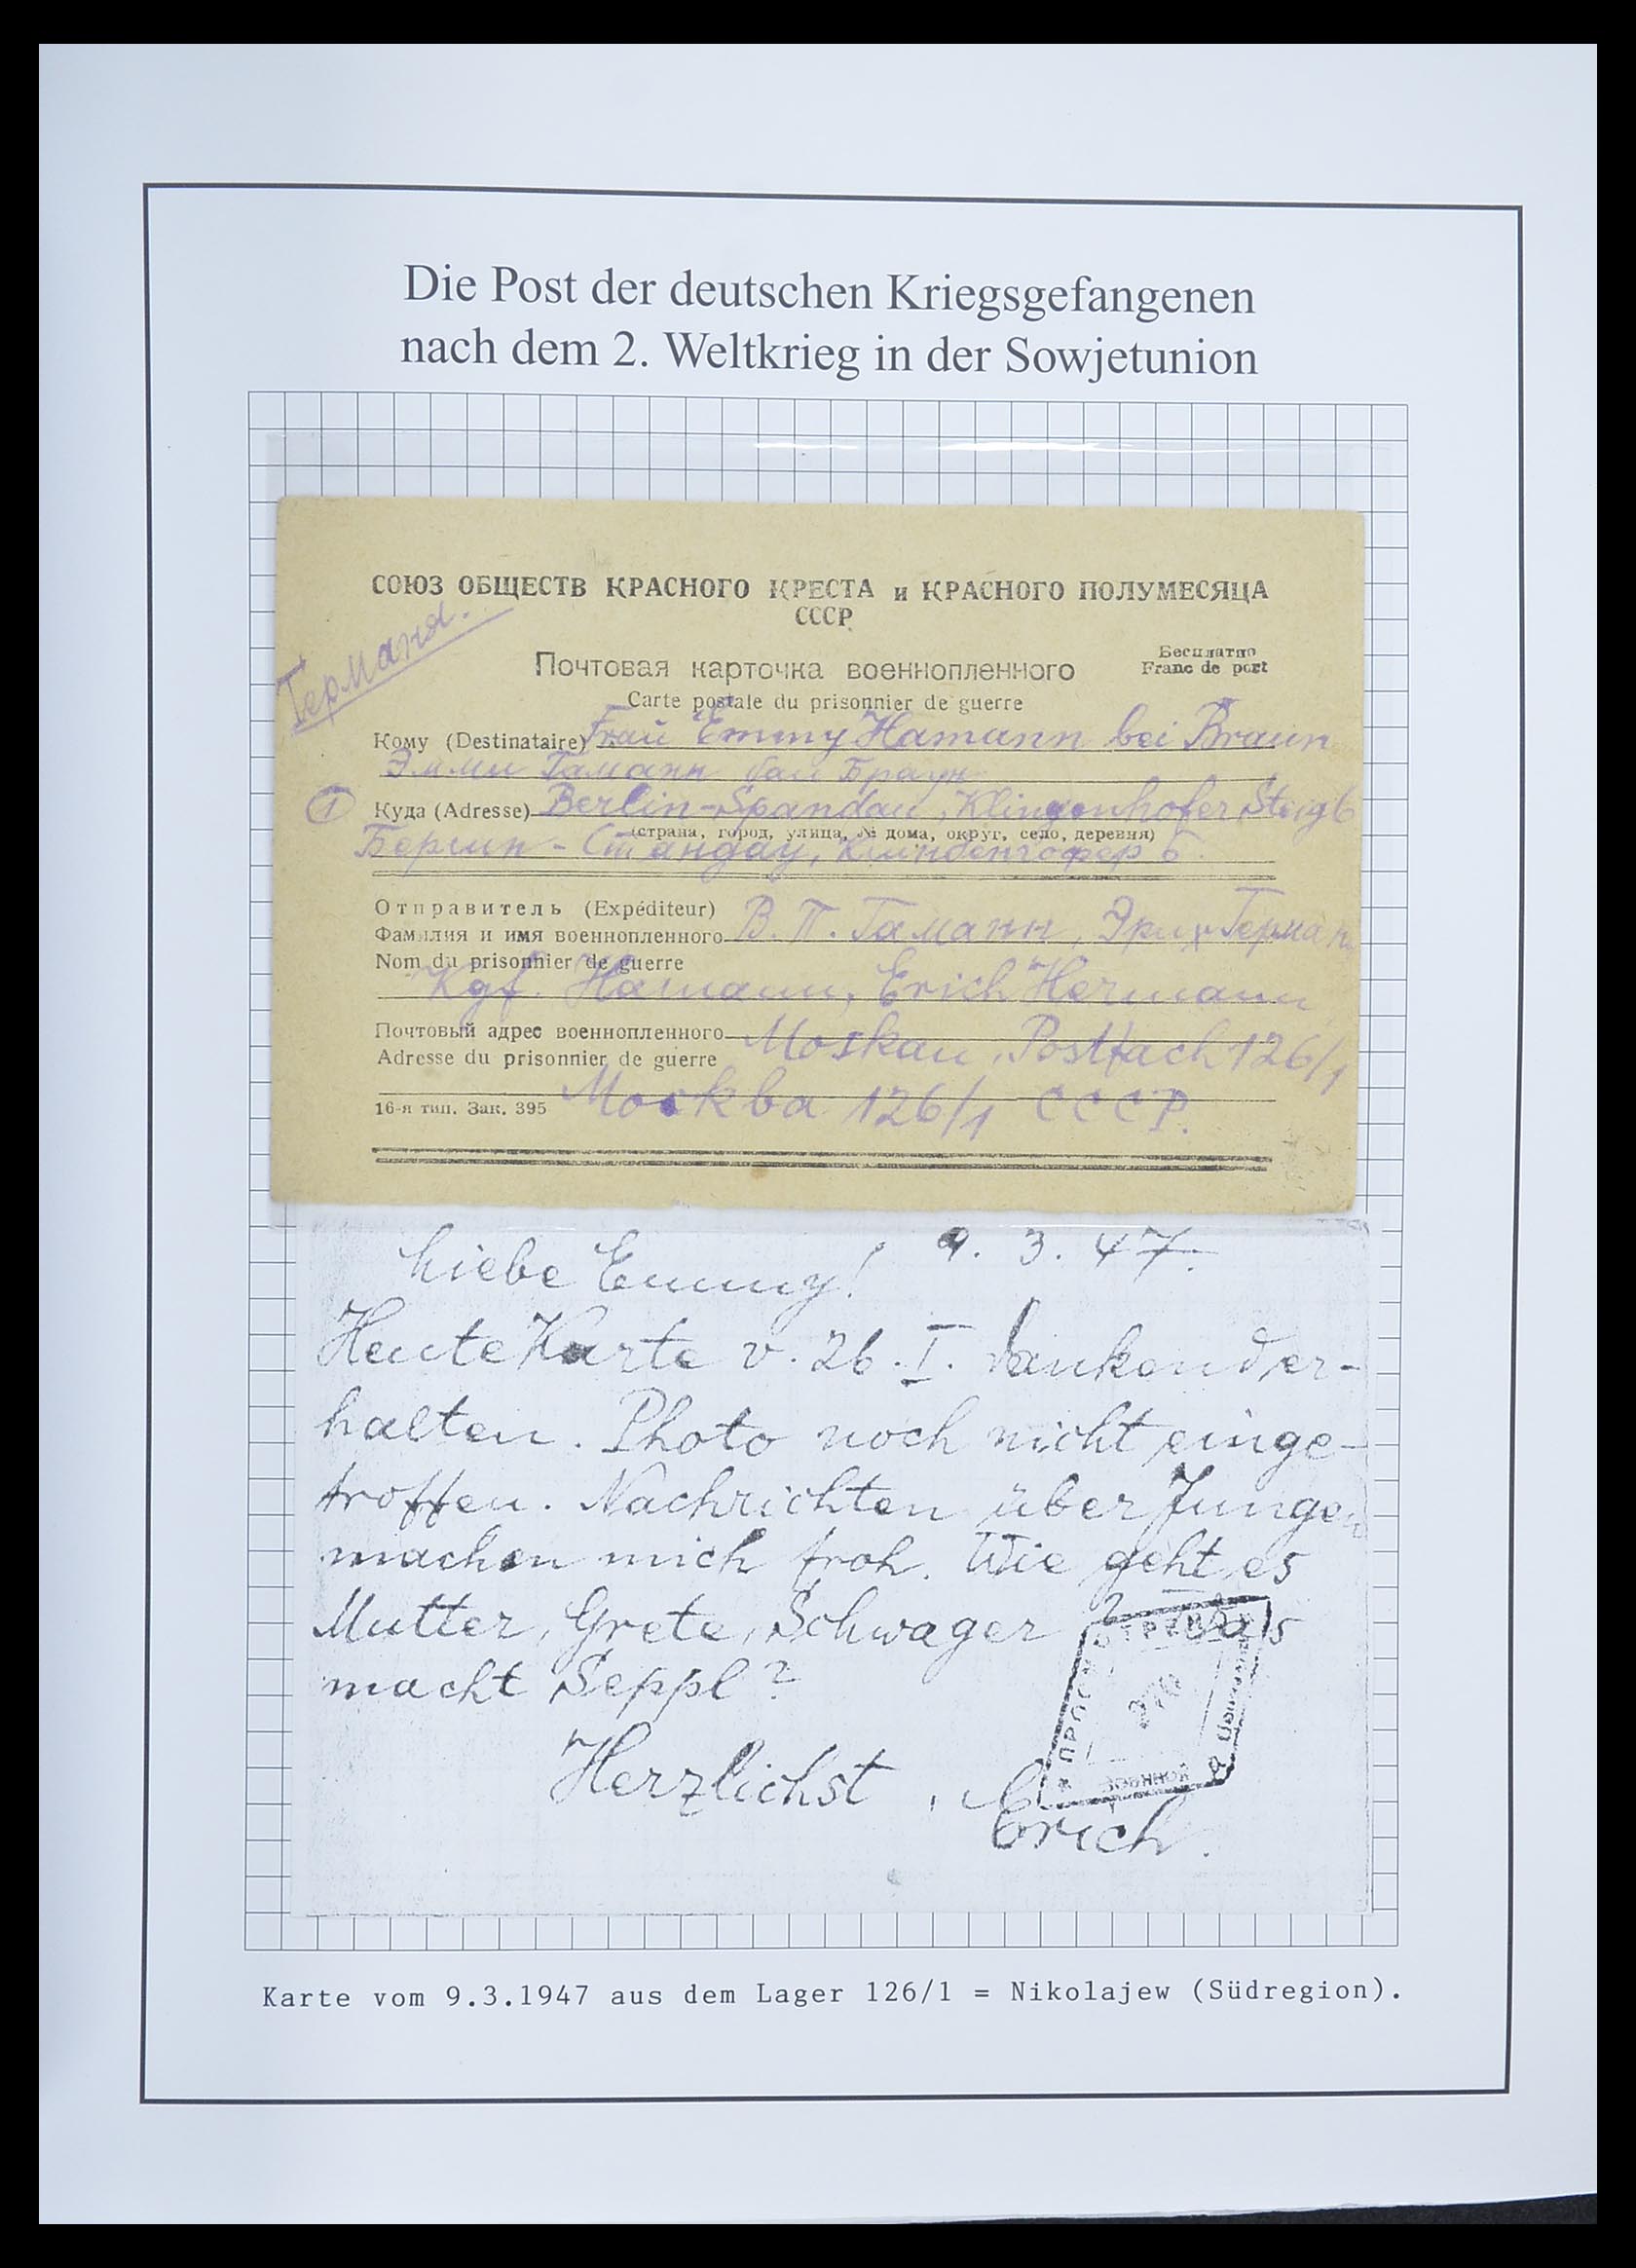 Die Post der deutschen Kriegsgefangenen
nach dem 2. Weltkrieg in der Sowjetunion
СОЮЗ ОБЩЕСТВ КРАСНОГО КРЕСТА и КРАСНОГО ПОЛУМЕСЯЦА
СССР
Германя.
Почтовая карточка военнопленного
Бесплатно
Franc de port
Carte postale du prisonnier de guerre
Кому (Destinataire) Frau Emmy Hamann bei Braun
Эмми Гаманн баи Браун
1
Куда (Adresse) Berlin-Spandau, Klingenhofer Steig 6
(страна, город, улица, № дома, округ, село, деревня)
Берлин - Стандау, 6
Отправитель (Expéditeur)
Фамилия и имя военнопленного В. П. Гаманн, Эрих Герман
Nom du prisonnier de guerre
Kgf. Hamann, Erich Hermann
Почтовый адрес военнопленного Moskau, Postfach 126/1
Adresse du prisonnier de guerre
16-я тип. Зак. 395 Москва 126/1 СССР.
Liebe Emmy! 9. 3. 47.
Heute Karte v. 26. I. dankend er-
halten. Photo noch nicht einge-
troffen. Nachrichten über Jungen
machen mich froh. Wie geht es
Mutter, Grete, Schwager? Was
macht Seppl?
Herzlichst, Erich.
Karte vom 9.3.1947 aus dem Lager 126/1 = Nikolajew (Südregion).